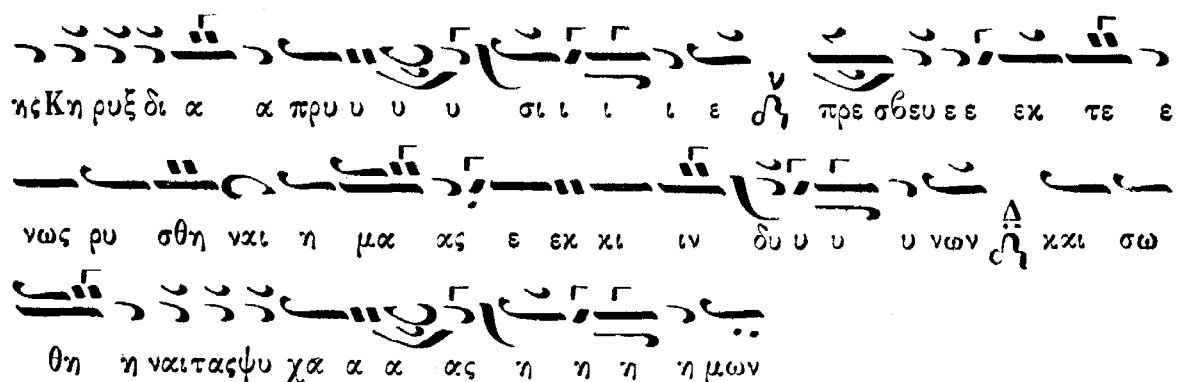 ης Κη ρυξ δι α α πρυ υ υ υ σι ι ι ι ε ν πρε σβευ ε ε εκ τε ε
νως ρυ σθη ναι η μα ας ε εκ κι ιν δυ υ υ υ νων Δ και σω
θη η ναι τας ψυ χα α α ας η η η η μων